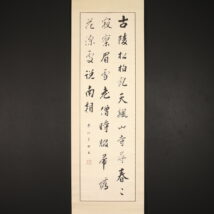 古陵松柏吼天飆山寺尋春々
寂寥眉雪老僧時輟帚落
花深處説南朝